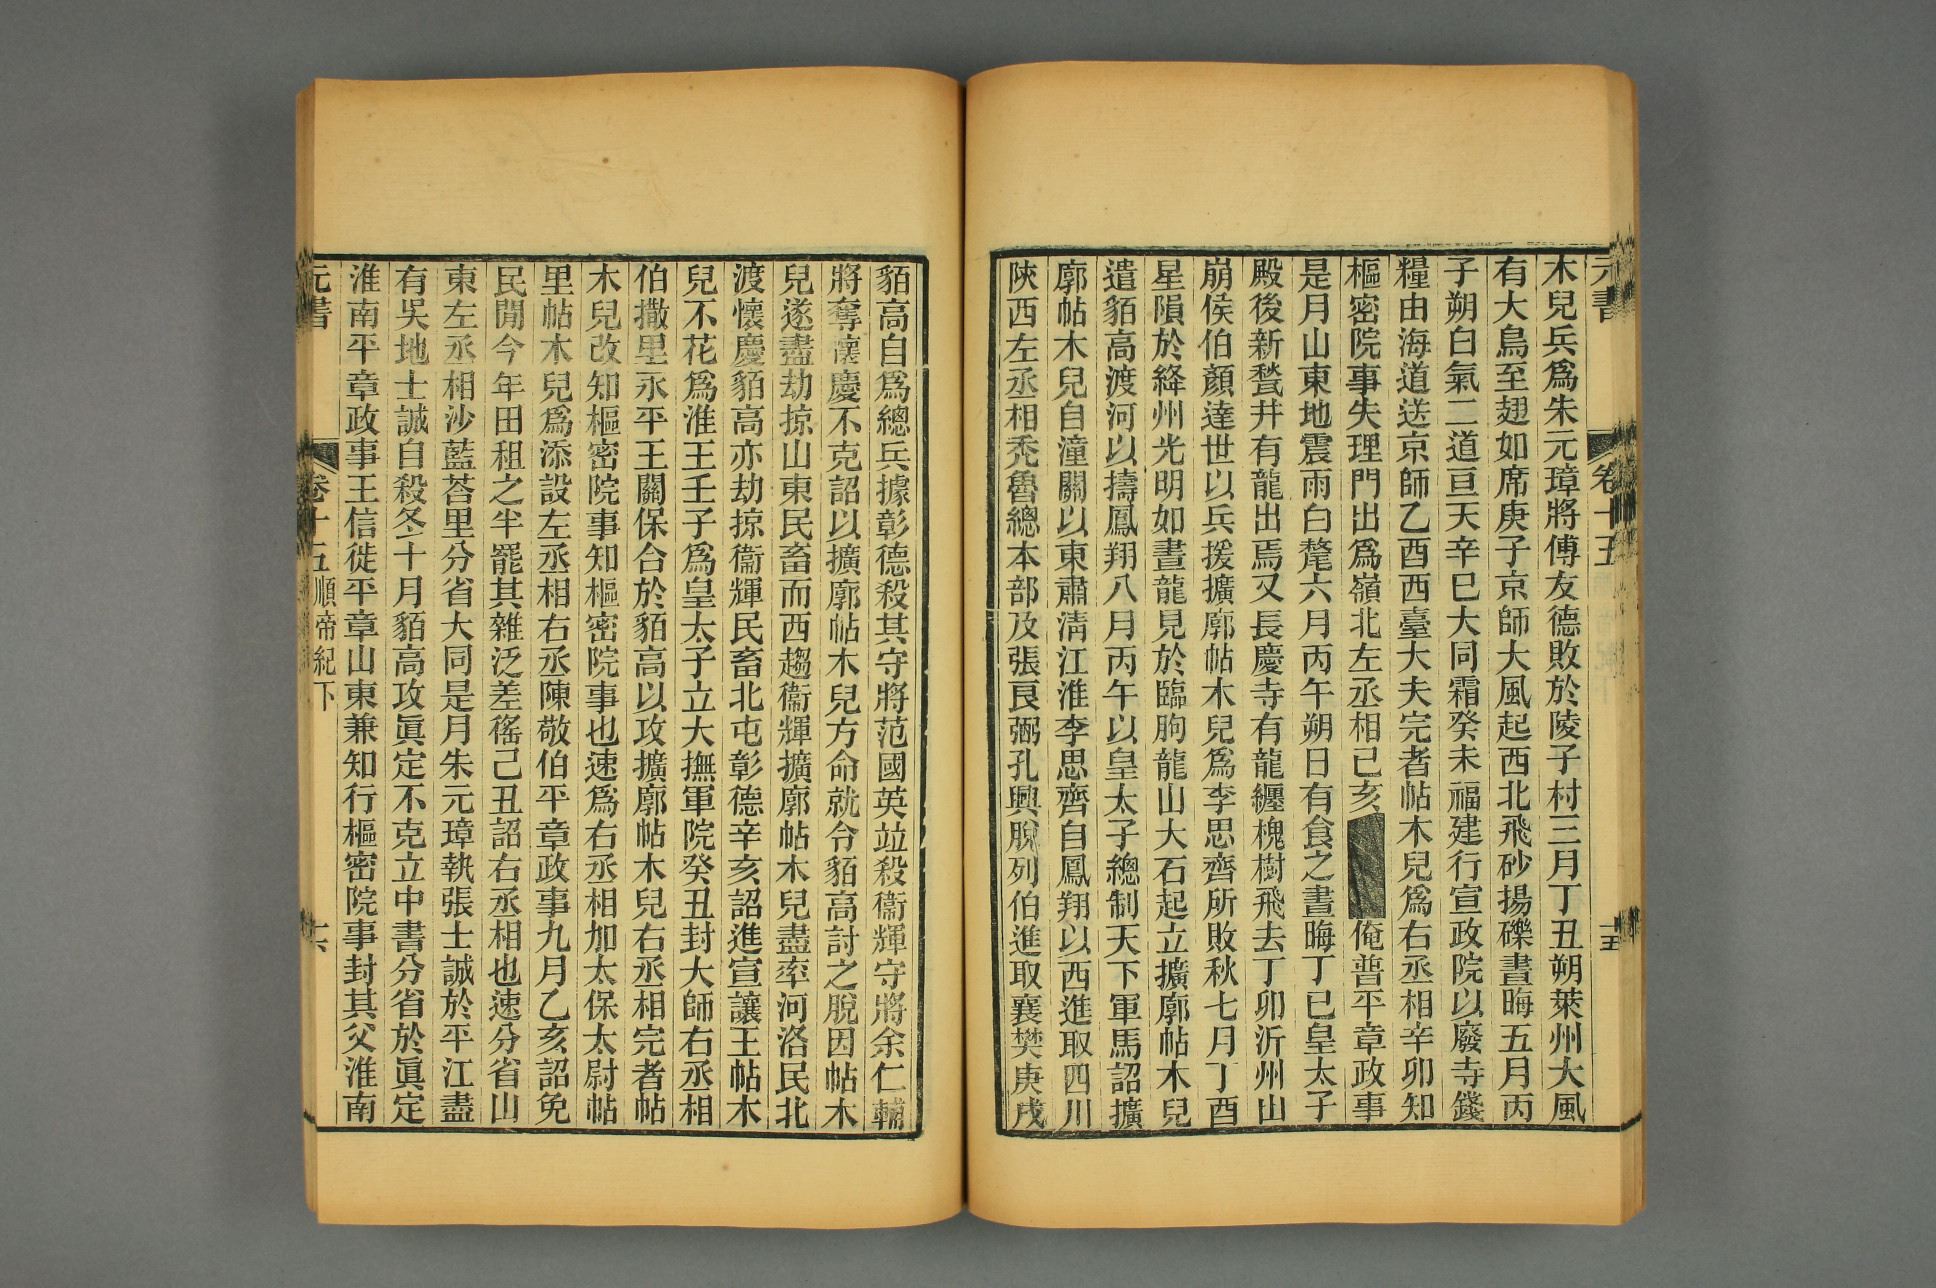 元書
卷十五
十五
木兒兵爲朱元璋將傅友德敗於陵子村三月丁丑朔萊州大風
有大鳥至翅如席庚子京師大風起西北飛砂揚礫晝晦五月丙
子朔白氣二道亘天辛巳大同霜癸未福建行宣政院以廢寺錢
糧由海道送京師乙酉西臺大夫完者帖木兒爲右丞相辛卯知
樞密院事失理門出爲嶺北左丞相己亥俺普平章政事
是月山東地震雨白氂六月丙午朔日有食之晝晦丁巳皇太子
殿後新甃井有龍出焉又長慶寺有龍纏槐樹飛去丁卯沂州山
崩侯伯顏達世以兵援擴廓帖木兒爲李思齊所敗秋七月丁酉
星隕於絳州光明如晝龍見於臨朐龍山大石起立擴廓帖木兒
遣貊高渡河以擣鳳翔八月丙午以皇太子總制天下軍馬詔擴
廓帖木兒自潼關以東肅淸江淮李思齊自鳳翔以西進取四川
陝西左丞相禿魯總本部及張良弼孔興脫列伯進取襄樊庚戌
貊高自爲總兵據彰德殺其守將范國英竝殺衞輝守將余仁輔
將奪懷慶不克詔以擴廓帖木兒方命就令貊高討之脫因帖木
兒遂盡劫掠山東民畜而西趨衞輝擴廓帖木兒盡率河洛民北
渡懷慶貊高亦劫掠衞輝民畜北屯彰德辛亥詔進宣讓王帖木
兒不花爲淮王壬子爲皇太子立大撫軍院癸丑封大師右丞相
伯撒里永平王關保合於貊高以攻擴廓帖木兒右丞相完者帖
木兒改知樞密院事知樞密院事也速爲右丞相加太保太尉帖
里帖木兒爲添設左丞相右丞陳敬伯平章政事九月乙亥詔免
民閒今年田租之半罷其雜泛差徭己丑詔右丞相也速分省山
東左丞相沙藍荅里分省大同是月朱元璋執張士誠於平江盡
有吳地士誠自殺冬十月貊高攻眞定不克立中書分省於眞定
淮南平章政事王信徙平章山東兼知行樞密院事封其父淮南
元書
卷十五順帝紀下
十六